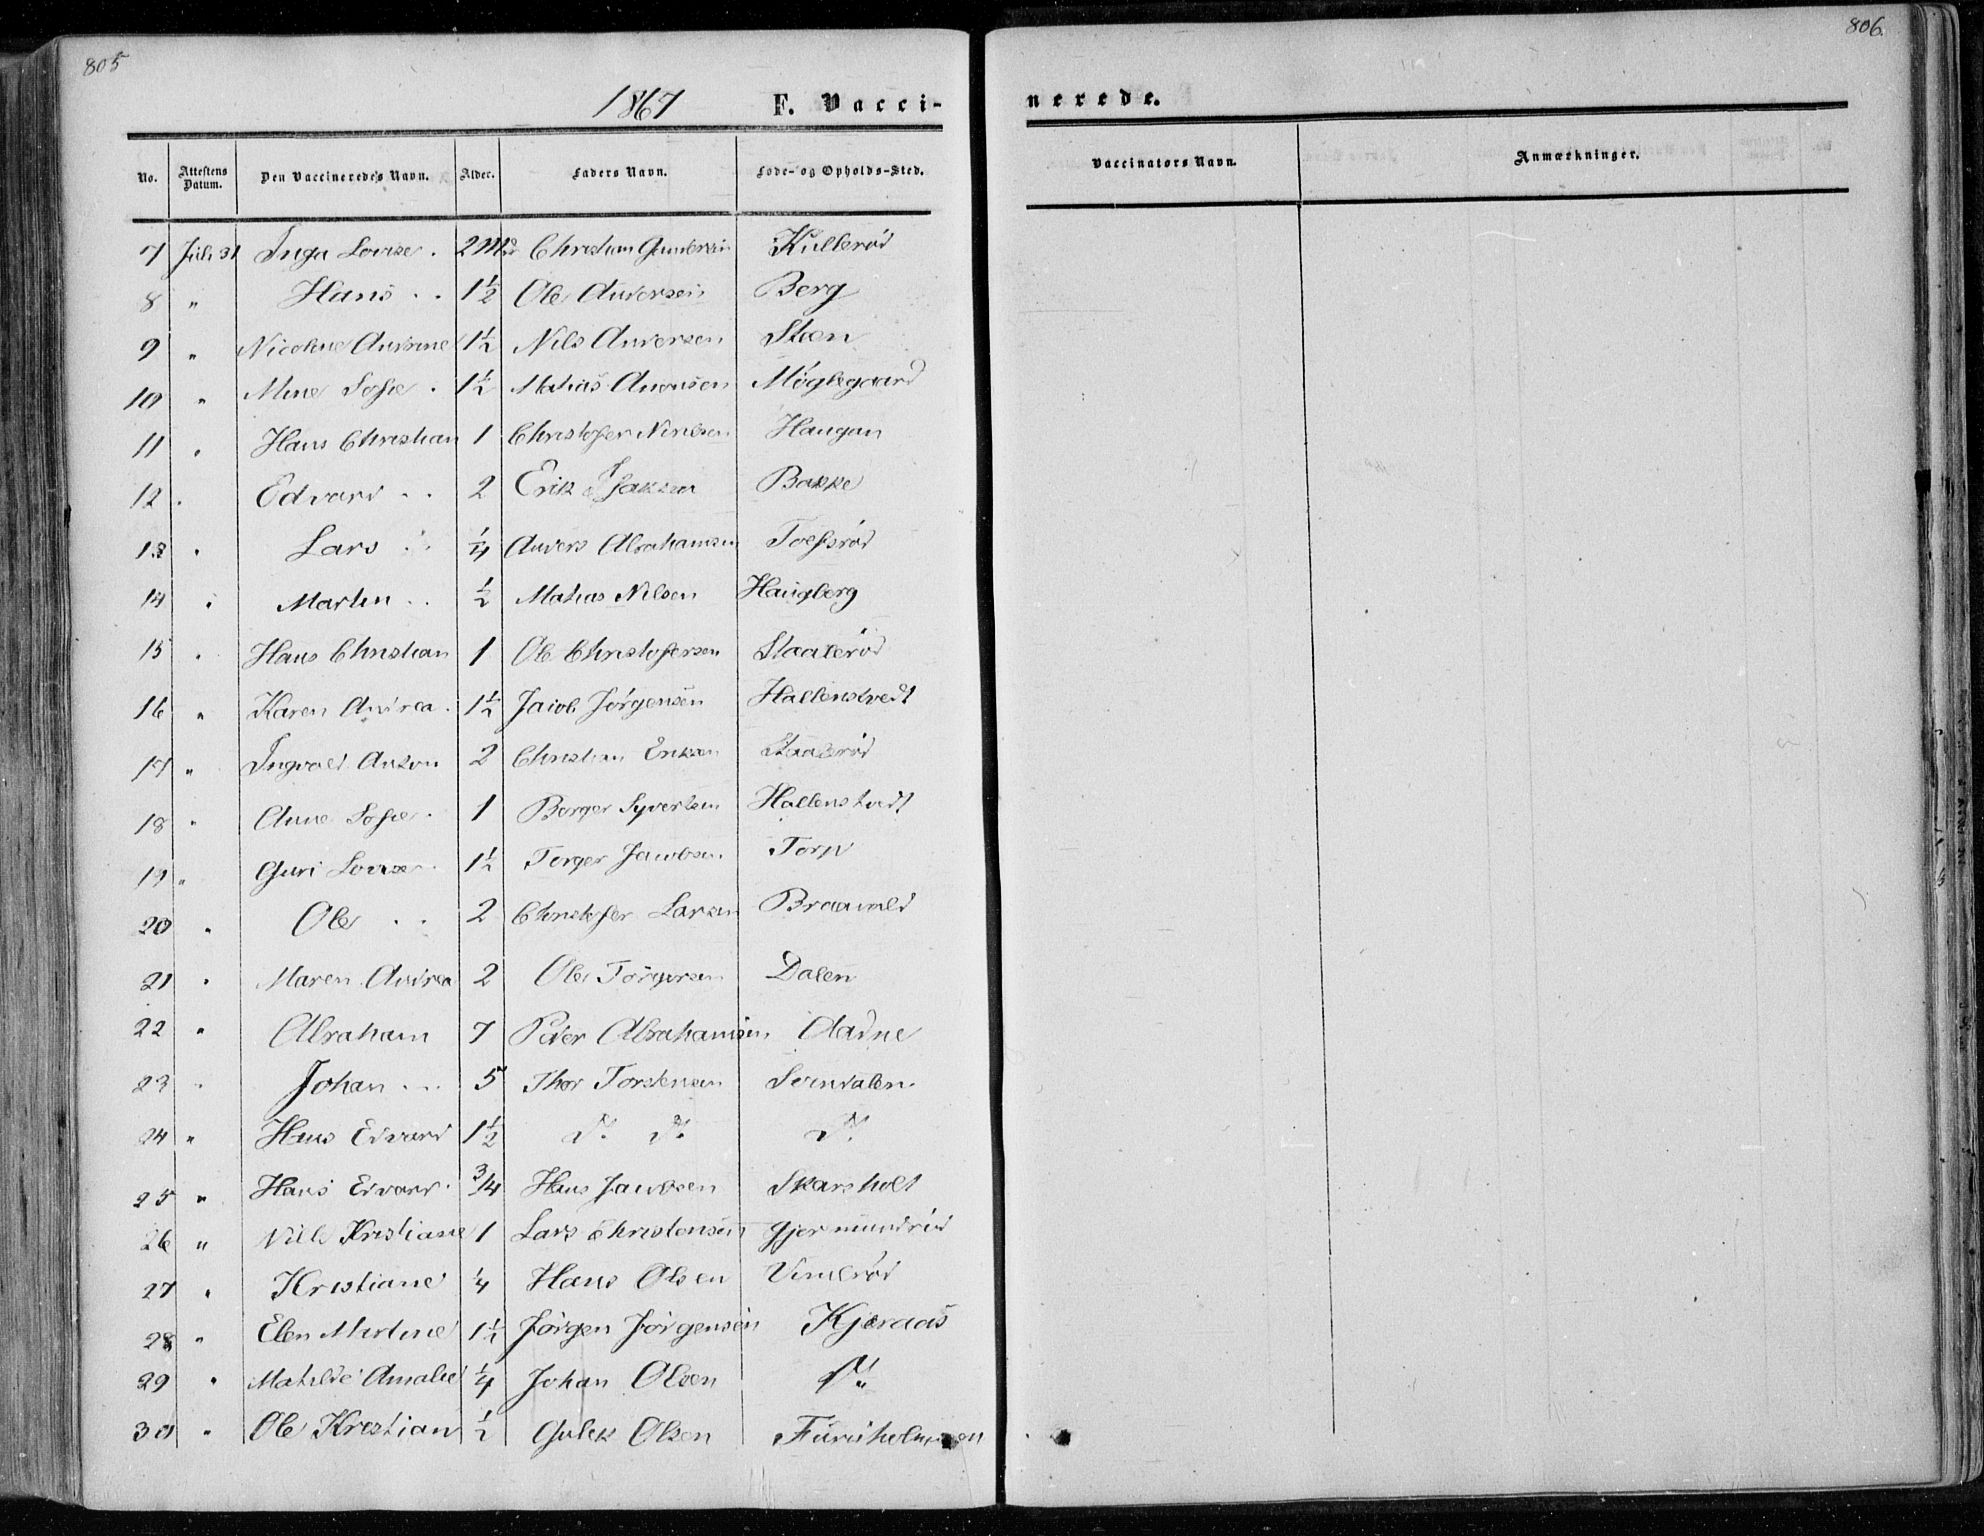 805
806.
1867 F. Vacci-
nerede.
No. Attestens Datum. Den Vaccineredes Navn. Alder. Faders Navn. Føde- og Opholds-Sted.
Vaccinators Navn. Anmærkninger.
7 Juli 31 Inga Lovise . 2 Christian Gundersen Kullerød
8 " Hans . . 1½ Ole Andersen Berg
9 " Nicoline Andrine 1½ Nils Andersen Steen
10 " Sofie . 1½ Matias Møglegaard
11 " Hans Christian 1 Christofer Haugan
12 . Edvard . . 2 Erik Isaksen Bakke
13 " Lars . . ¼ Anders Abrahamsen
14 " Martin . . ½ Matias Nilsen Haugberg
15 " Hans Christian 1 Ole Christofersen Staalerød
16 " Karen Andrea . 1½ Jacob Jørgensen Hallenstvedt
17 " Ingvald Anton 2 Christian Eriksen Staalerød
18 " Anne Sofie . 1 Borger Syvertsen Hallenstvedt
19 " Guri Lovise . 1½ Torger Jacobsen Torp
20 " Ole . . 2 Christofer Larsen Braavald
21 " Maren Andrea 2 Ole Torgersen Dalen
22 " Abraham 7 Peder Abrahamsen Aadne
23 " Johan . . . 5 Thor Torstensen Svendalen
24 " Hans Edvard 1½ Do Do Do
25 " Hans Edvard . ¾ Hans Jacobsen Skarsholt
26 " Kristiane 1 Lars Christensen Gjermundrød
27 " Kristiane ¼ Hans Olsen
28 " Elen Martine 1½ Jørgen Jørgensen Kjeraas
29 " Matilde Amalie ¼ Johan Olsen Do
30 " Ole Kristian ½ Gulek Olsen Furuholmen